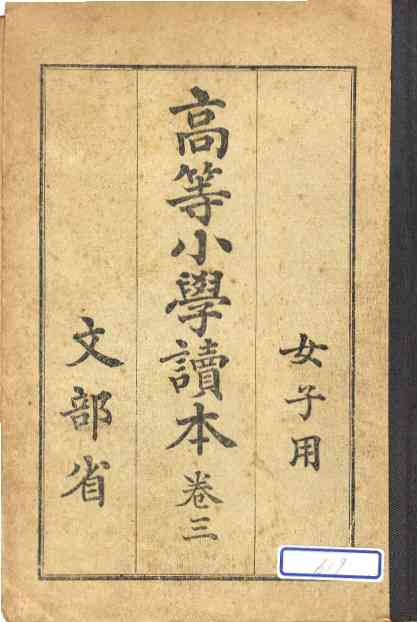 女子用
高等小學讀本 卷三
文部省